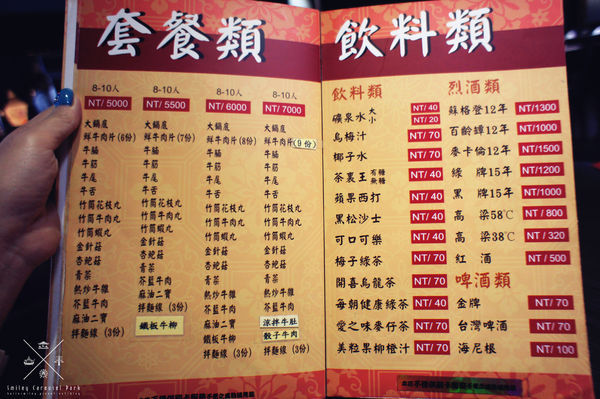 套餐類
8-10人
NT/ 5000
大鍋底
鮮牛肉片(6份)
牛腩
牛筋
牛尾
牛舌
竹筒花枝丸
竹筒牛肉丸
竹筒蝦丸
金針菇
杏鮑菇
青菜
熱炒牛雜
芥藍牛肉
麻油二寶
拌麵線(3份)
8-10人
NT/ 5500
大鍋底
鮮牛肉片(7份)
牛腩
牛筋
牛尾
牛舌
竹筒花枝丸
竹筒牛肉丸
竹筒蝦丸
金針菇
杏鮑菇
青菜
熱炒牛雜
芥藍牛肉
麻油二寶
拌麵線 (3份)
鐵板牛柳
8-10人
NT/ 6000
大鍋底
鮮牛肉片(8份)
牛腩
牛筋
牛尾
牛舌
竹筒花枝丸
竹筒牛肉丸
竹筒蝦丸
金針菇
杏鮑菇
青菜
熱炒牛雜
芥藍牛肉
麻油二寶
鐵板牛柳
拌麵線 (3份)
8-10人
NT/ 7000
大鍋底
鮮牛肉片(9份)
牛腩
牛筋
牛尾
牛舌
竹筒花枝丸
竹筒牛肉丸
竹筒蝦丸
金針菇
杏鮑菇
青菜
熱炒牛雜
芥藍牛肉
涼拌牛肚
骰子牛肉
拌麵線 (3份)
飲料類
飲料類
礦泉水 大 NT/ 40
小 NT/ 20
烏梅汁 NT/ 70
椰子水 NT/ 70
茶裏王 有糖 無糖 NT/ 40
蘋果西打 NT/ 40
黑松沙士 NT/ 40
可口可樂 NT/ 40
梅子綠茶 NT/ 70
開喜烏龍茶 NT/ 70
每朝健康綠茶 NT/ 40
愛之味麥仔茶 NT/ 70
美粒果柳橙汁 NT/ 70
烈酒類
蘇格登12年 NT/1300
百齡罈12年 NT/1000
麥卡倫12年 NT/1500
綠 牌 15年 NT/1200
黑 牌 12年 NT/1000
高 梁58℃ NT/ 800
高 梁38℃ NT/ 320
紅 酒 NT/ 500
啤酒類
金牌 NT/ 70
台灣啤酒 NT/ 70
海尼根 NT/ 100
Smiley Carousel Park